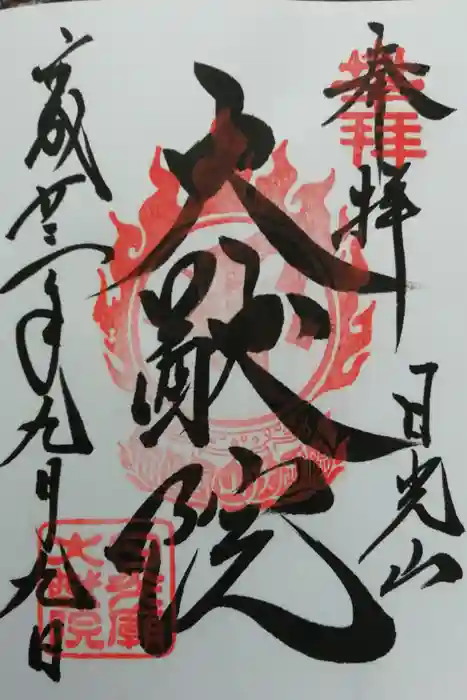 奉拝
日光山
大猷院
平成廿三年九月九日
大猷院